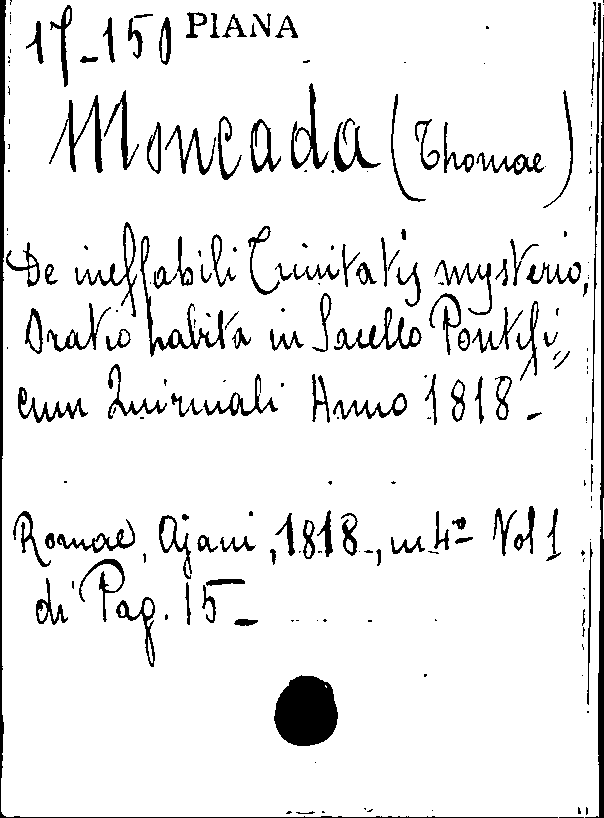 17-150 PIANA
Moncada (Thomae)
De ineffabili Trinitatis mysterio,
Oratio habita in Sacello Pontifi„
cum Quirinali Anno 1818-
Romae, Ajani, 1818., in 4º- Vol 1
di Pag. 15-